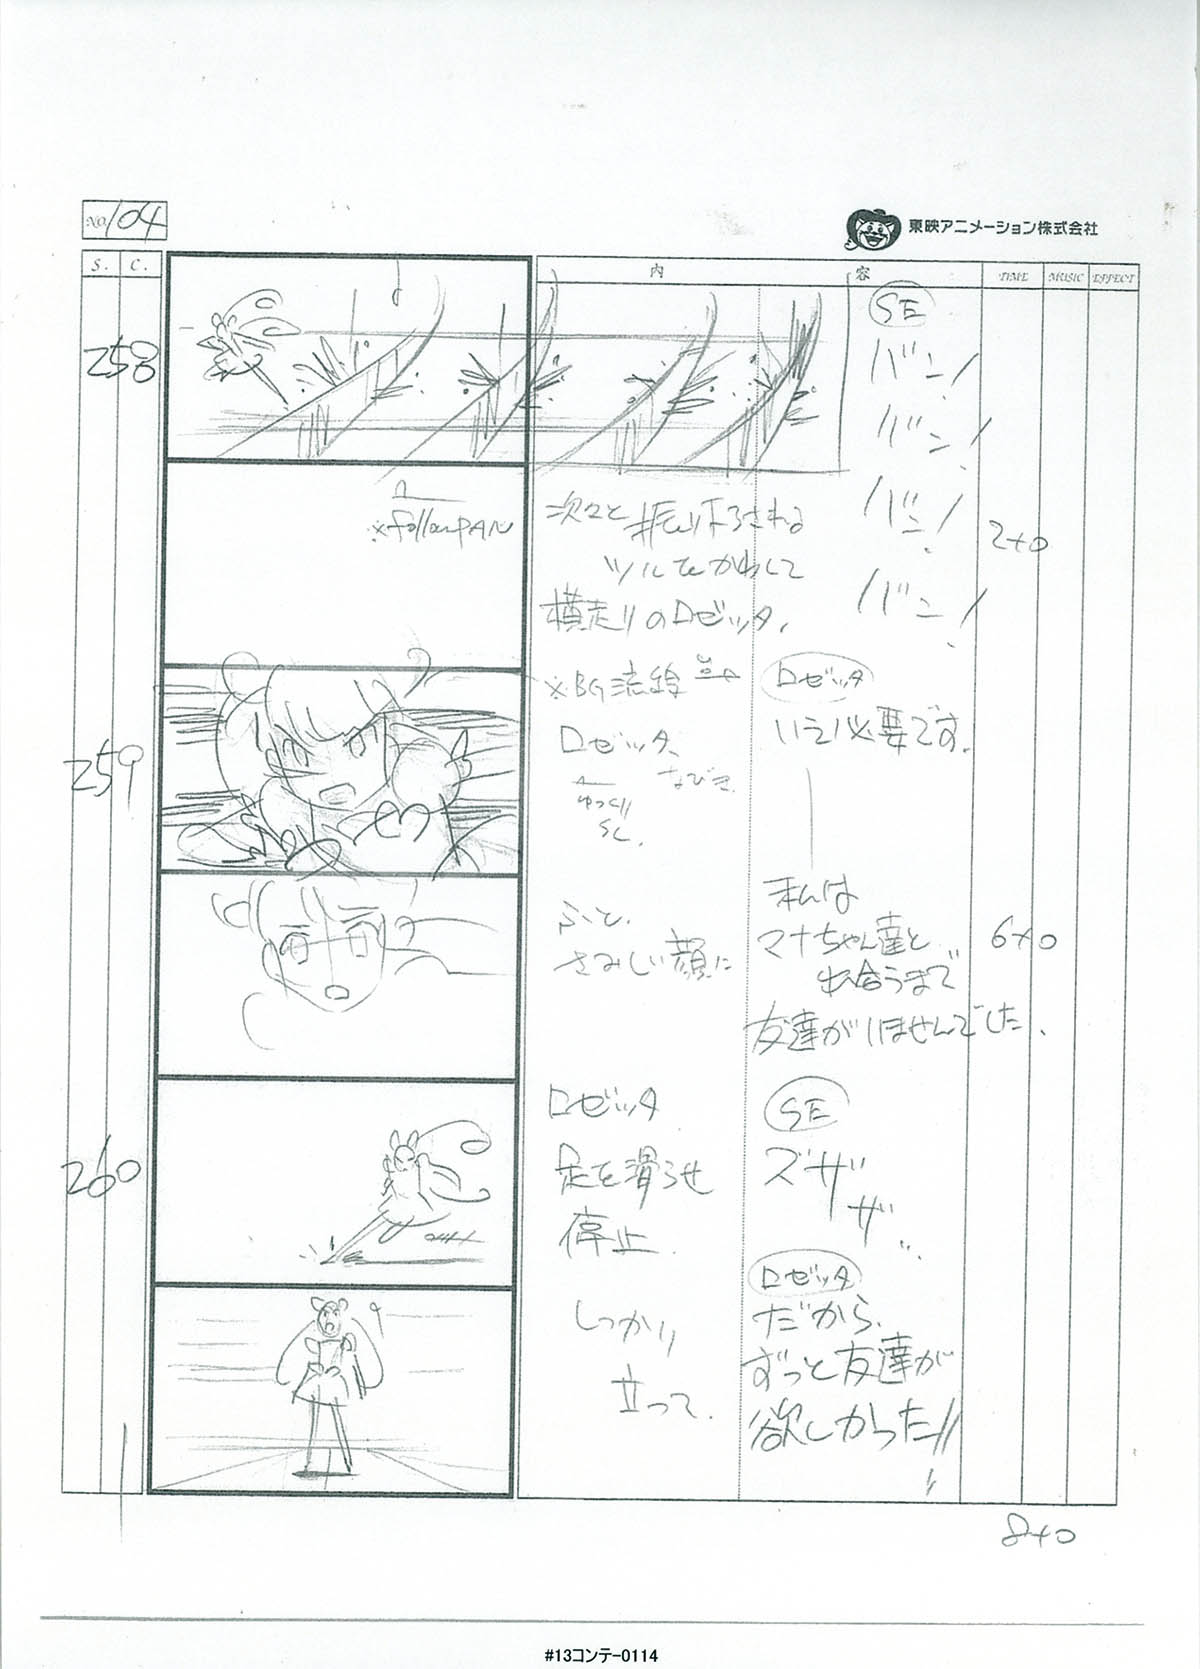 No. 104
東映アニメーション株式会社
S. C. 内 容 TIME MUSIC EFFECT
258
SE
バン!
バン!
バン!
バン!
※followPAN
次々と振り下ろされる
ツルをかわして
横走りのロゼッタ、
2+0
259
※BG流線
ロゼッタ、
なびき
ゆっくり
SL.
ロゼッタ
いえ!必要です。
ふと、
さみしい顔に
私は
マナちゃん達と
出会うまで
友達がいませんでした、
6+0
260
ロゼッタ
足を滑らせ
停止.
SE
ズザザザ…
しっかり
立って.
ロゼッタ
だから、
ずっと友達が
欲しかった!!
8+0
#13コンテ-0114